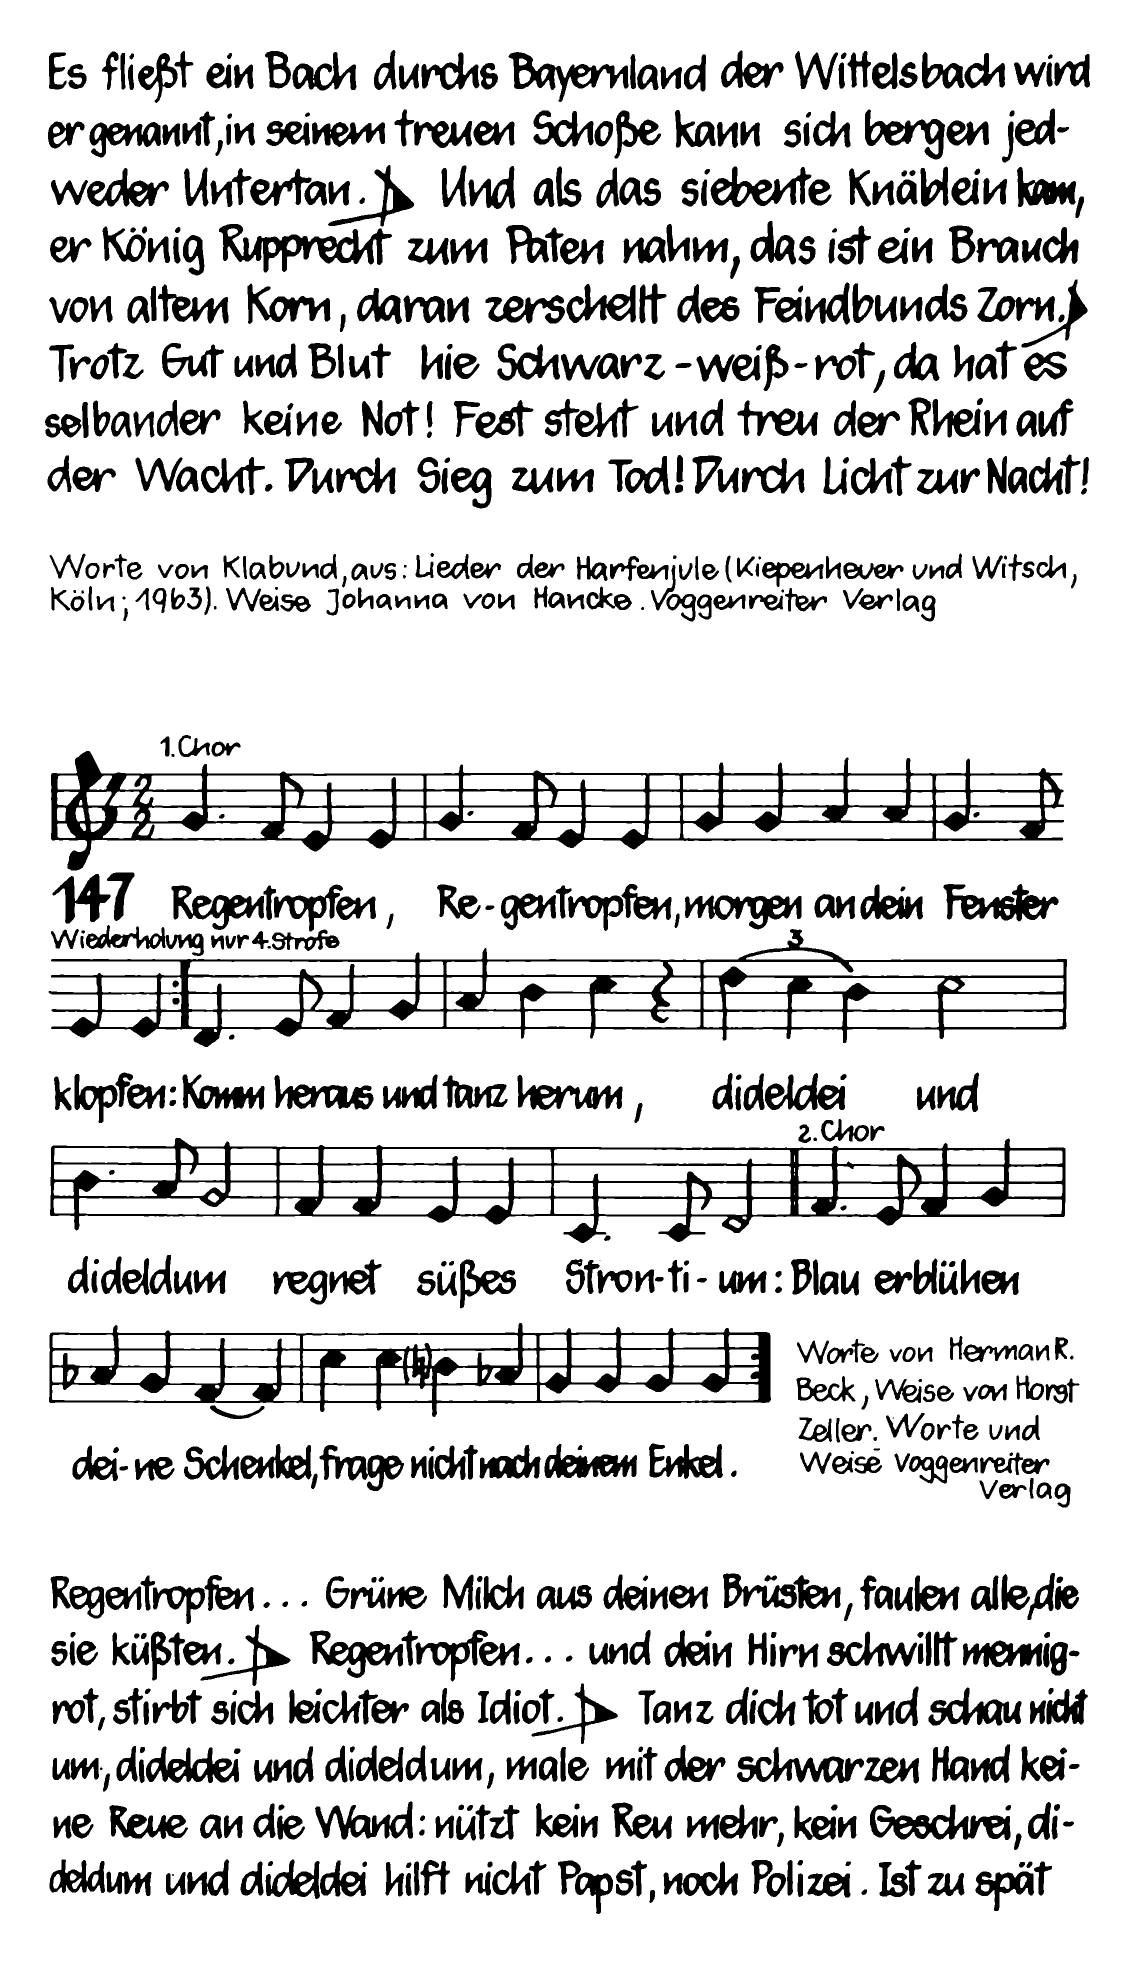 Es fließt ein Bach durchs Bayernland der Wittelsbach wird
er genannt, in seinem treuen Schoße kann sich bergen jed-
weder Untertan. Und als das siebente Knäblein kam,
er König Rupprecht zum Paten nahm, das ist ein Brauch
von altem Korn, daran zerschellt des Feindbunds Zorn.
Trotz Gut und Blut hie Schwarz-weiß-rot, da hat es
selbander keine Not! Fest steht und treu der Rhein auf
der Wacht. Durch Sieg zum Tod! Durch Licht zur Nacht!
Worte von Klabund, aus: Lieder der Harfenjule (Kiepenheuer und Witsch,
Köln; 1963). Weise Johanna von Hancke. Voggenreiter Verlag
1. Chor
147 Regentropfen, Re-gentropfen, morgen an dein Fenster
Wiederholung nur 4. Strofe
3
klopfen: Komm heraus und tanz herum, dideldei und
2. Chor
dideldum regnet süßes Stron-ti-um: Blau erblühen
dei-ne Schenkel, frage nicht nach deinem Enkel.
Worte von Herman R.
Beck, Weise von Horst
Zeller. Worte und
Weise Voggenreiter
Verlag
Regentropfen... Grüne Milch aus deinen Brüsten, faulen alle, die
sie küßten. Regentropfen... und dein Hirn schwillt mennig-
rot, stirbt sich leichter als Idiot. Tanz dich tot und schau nicht
um, dideldei und dideldum, male mit der schwarzen Hand kei-
ne Reue an die Wand: nützt kein Reu mehr, kein Geschrei, di-
deldum und dideldei hilft nicht Papst, noch Polizei. Ist zu spät